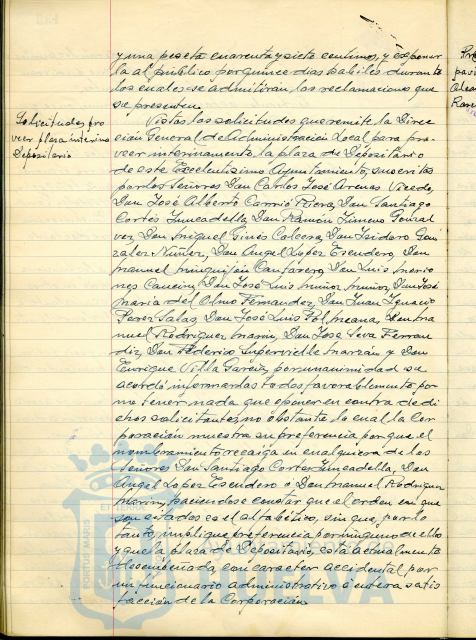 y una peseta cuarenta y siete centimos, y exponer
la al publico por quince dias habiles durante
los cuales se admitiran las reclamaciones que
se presenten.
Solicitudes pro
veer plaza interina
Depositario
Vistas las solicitudes que remite la Direc
ción General de Administración Local para pro-
veer interinamente la plaza de Depositario
de este Excelentisimo Ayuntamiento, suscritas
por los Señores Don Carlos José Arenas
Don José Alberto Carrió Don Santiago
Cortés Don Ramón Gimeno Gonzal
vez, Don Miguel Ginés Don Isidoro Gon
zalez Nuñez, Don Angel Lopez Escudero, Don
Manuel Don Luis
Don José Luis Muñoz Muñoz, Don José
Maria del Olmo Fernandez, Don Juan Ignacio
Perez Salas, Don José Luis Pol Meana, Don Ma
nuel Rodriguez Marin, Don José Seva Ferran
diz, Don Federico Supervielle Marzán y Don
Enrique Villa por unanimidad se
acordó informarlas todas favorablemente por
no tener nada que oponer en contra de di
chos solicitantes, no obstante lo cual la Cor
poración muestra su preferencia porque el
nombramiento recaiga en cualquiera de los
Señores Don Santiago Cortes Don
Angel Lopez Escudero o Don Manuel Rodriguez
Marin, haciendose constar que el orden en que
son citados es el alfabético, sin que, por lo
tanto, implique preferencia por ninguno de ellos
y que la plaza de Depositario, está actualmente
desempeñada, con caracter accidental por
un funcionario administrativo a entera satis
facción de la Corporación.